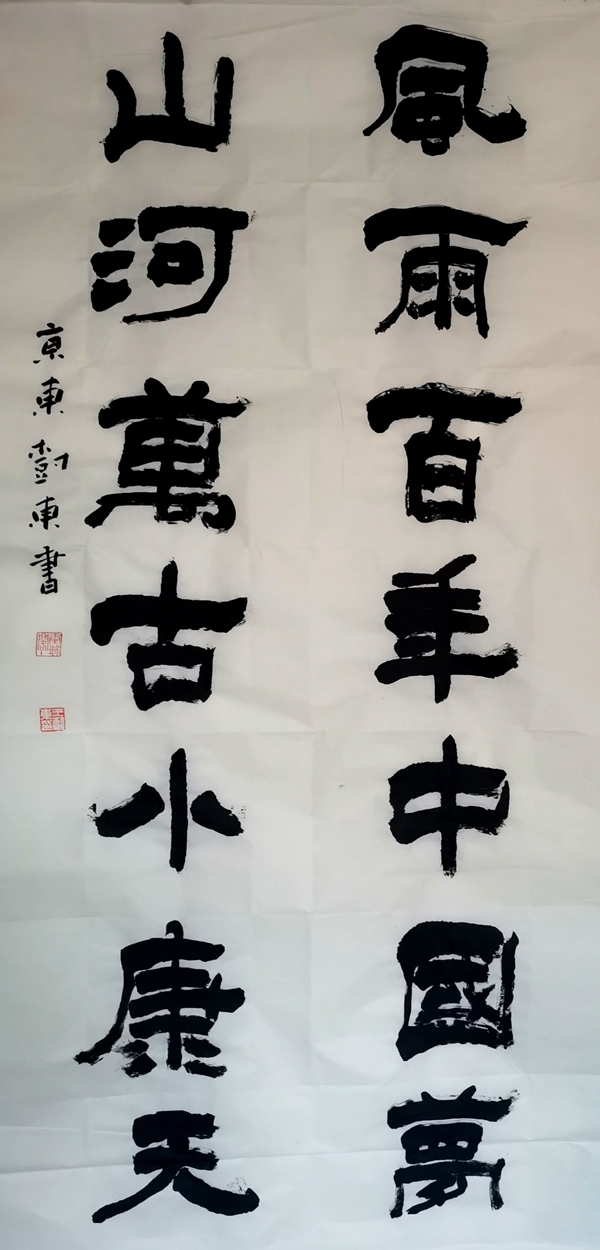 風雨百年中國夢
山河萬古小康天
京東彭東書